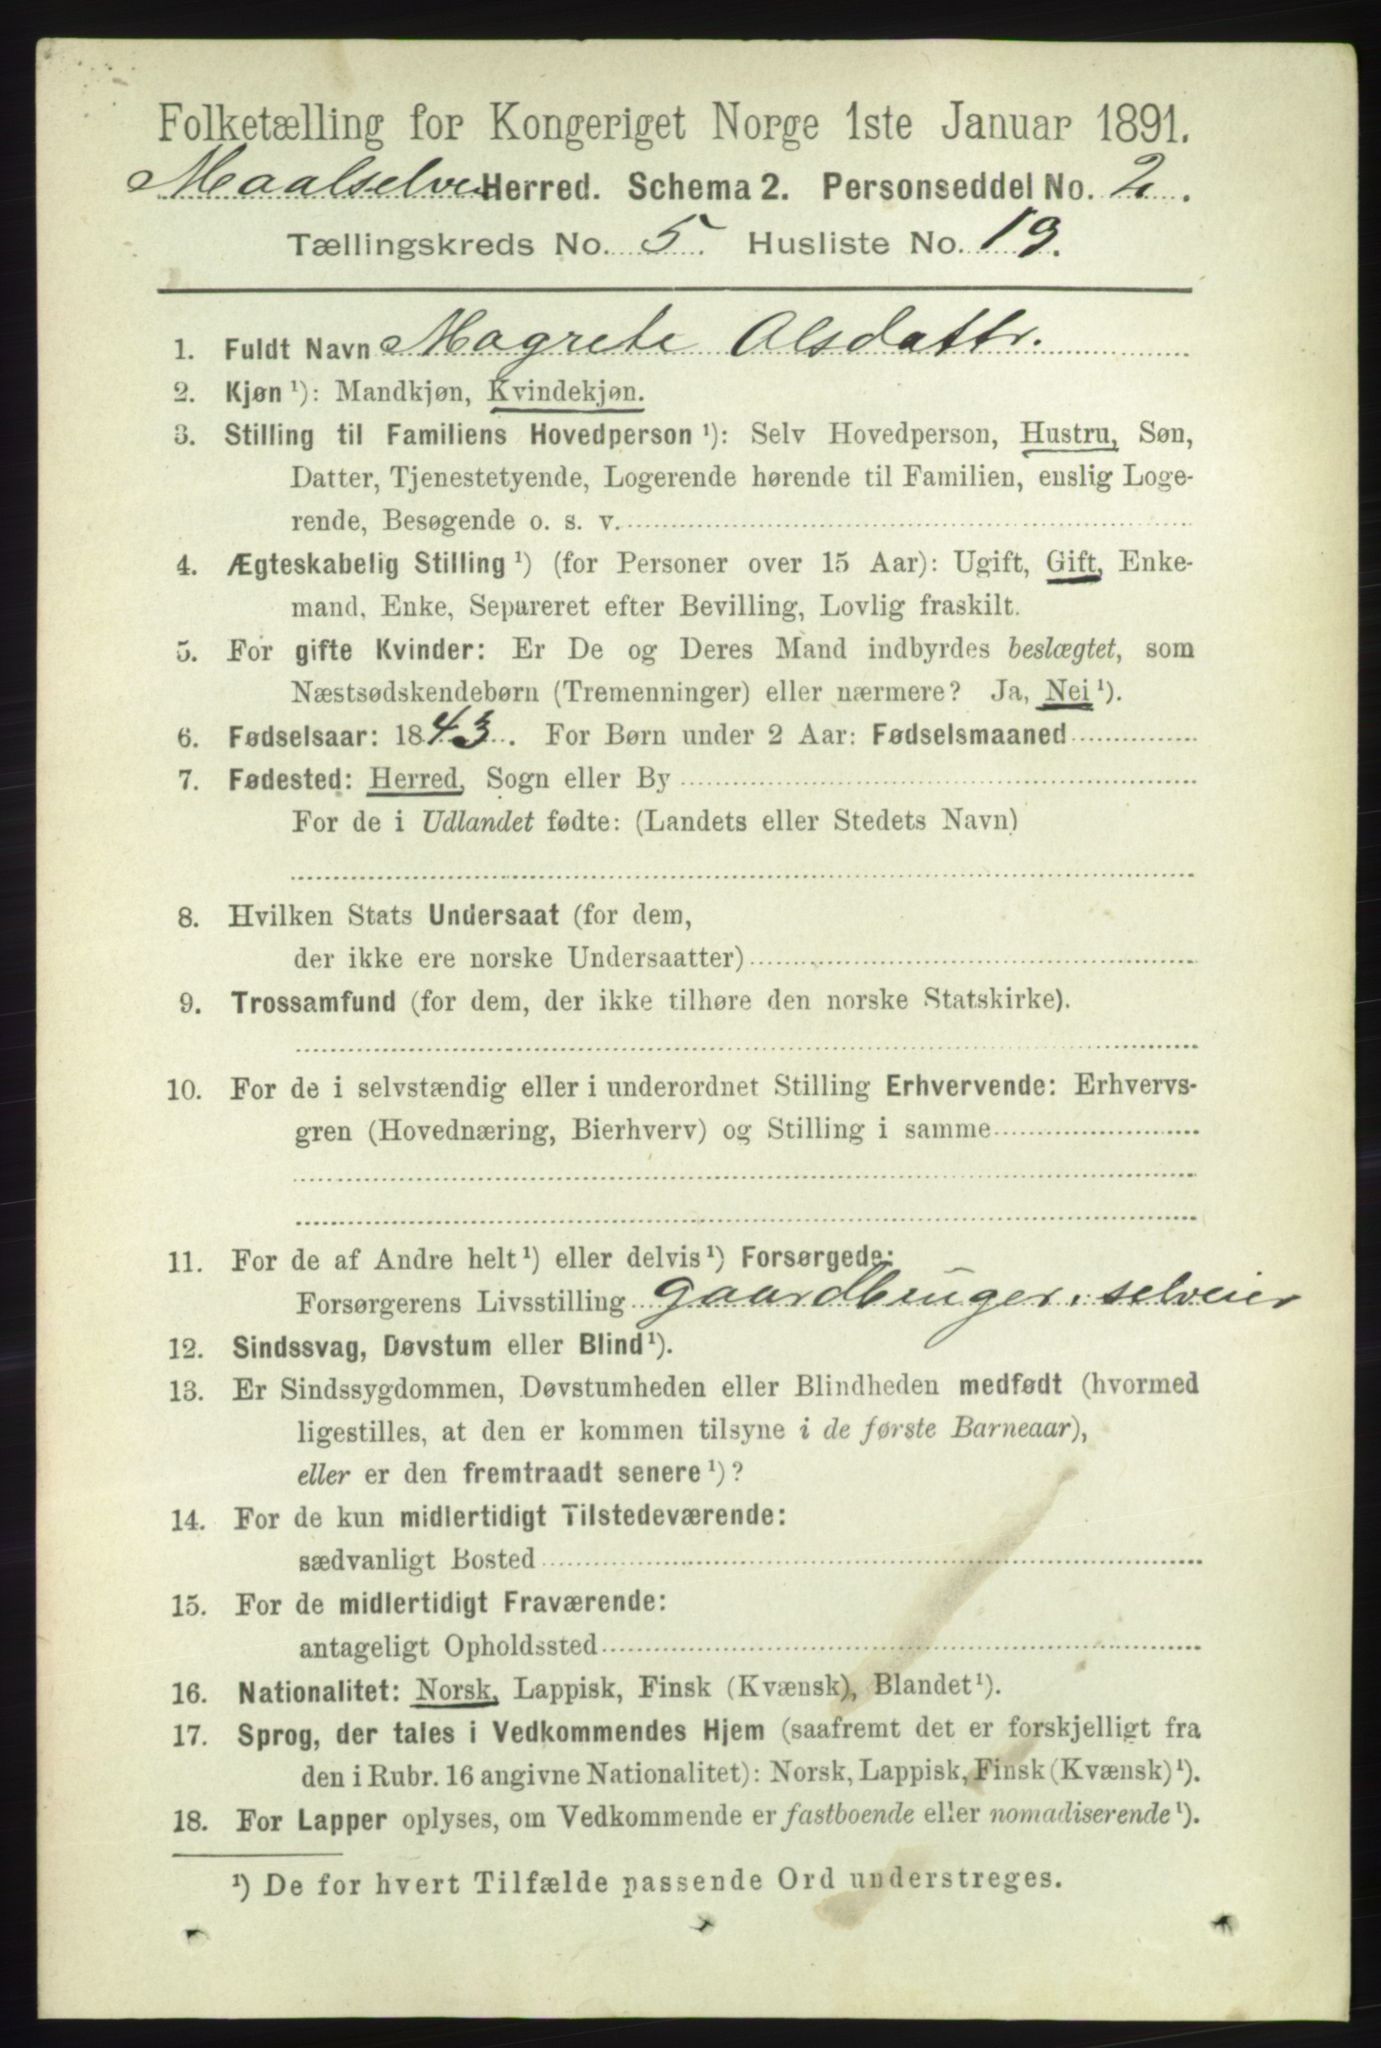 Folketælling for Kongeriget Norge 1ste Januar 1891.
Maalselven Herred. Schema 2. Personseddel No. 2.
Tællingskreds No. 5. Husliste No. 19.
1. Fuldt Navn Magrete Olsdattr.
2. Kjøn ¹): Mandkjøn, Kvindekjøn.
3. Stilling til Familiens Hovedperson ¹): Selv Hovedperson, Hustru, Søn,
Datter, Tjenestetyende, Logerende hørende til Familien, enslig Loge-
rende, Besøgende o. s. v.
4. Ægteskabelig Stilling ¹) (for Personer over 15 Aar): Ugift, Gift, Enke-
mand, Enke, Separeret efter Bevilling, Lovlig fraskilt.
5. For gifte Kvinder: Er De og Deres Mand indbyrdes beslægtet, som
Næstsødskendebørn (Tremenninger) eller nærmere? Ja, Nei ¹).
6. Fødselsaar: 1843. For Børn under 2 Aar: Fødselsmaaned
7. Fødested: Herred, Sogn eller By
For de i Udlandet fødte: (Landets eller Stedets Navn)
8. Hvilken Stats Undersaat (for dem,
der ikke ere norske Undersaatter)
9. Trossamfund (for dem, der ikke tilhøre den norske Statskirke).
10. For de i selvstændig eller i underordnet Stilling Erhvervende: Erhvervs-
gren (Hovednæring, Bierhverv) og Stilling i samme
11. For de af Andre helt ¹) eller delvis ¹) Forsørgede:
Forsørgerens Livsstilling gaardbruger, selveier
12. Sindssvag, Døvstum eller Blind ¹).
13. Er Sindssygdommen, Døvstumheden eller Blindheden medfødt (hvormed
ligestilles, at den er kommen tilsyne i de første Barneaar),
eller er den fremtraadt senere ¹)?
14. For de kun midlertidigt Tilstedeværende:
sædvanligt Bosted
15. For de midlertidigt Fraværende:
antageligt Opholdssted
16. Nationalitet: Norsk, Lappisk, Finsk (Kvænsk), Blandet ¹).
17. Sprog, der tales i Vedkommendes Hjem (saafremt det er forskjelligt fra
den i Rubr. 16 angivne Nationalitet): Norsk, Lappisk, Finsk (Kvænsk) ¹).
18. For Lapper oplyses, om Vedkommende er fastboende eller nomadiserende ¹).
¹) De for hvert Tilfælde passende Ord understreges.